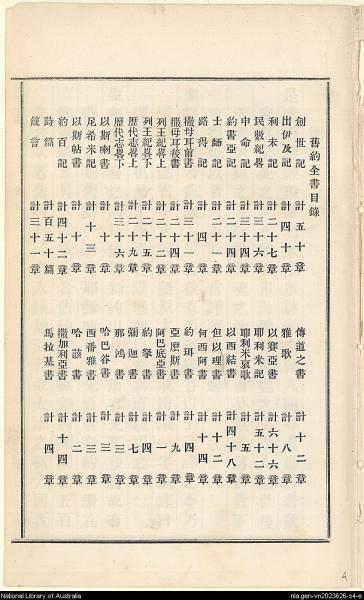 舊約全書目錄
創世記 計五十章
出伊及記 計四十章
利未記 計二十七章
民數紀畧 計三十六章
申命記 計三十四章
約書亞記 計二十四章
士師記 計二十一章
路得記 計四章
撒母耳前書 計三十一章
撒母耳後書 計二十四章
列王紀畧上 計二十二章
列王紀畧下 計二十五章
歷代志畧上 計二十九章
歷代志畧下 計三十六章
以斯喇書 計十章
尼希米記 計十三章
以斯帖書 計十章
約百記 計四十二章
詩篇 計百五十篇
箴言 計三十一章
傳道之書 計十二章
雅歌 計八章
以賽亞書 計六十六章
耶利米記 計五十二章
耶利米哀歌 計五章
以西結書 計四十八章
但以理書 計十二章
何西阿書 計十四章
約珥書 計四章
亞麽斯書 計九章
阿巴底亞書 計一章
約拏書 計四章
彌迦書 計七章
那鴻書 計三章
哈巴谷書 計三章
西番雅書 計三章
哈該書 計二章
撒加利亞書 計十四章
馬拉基書 計四章
National Library of Australia
nla.gen-vn2023626-s4-e